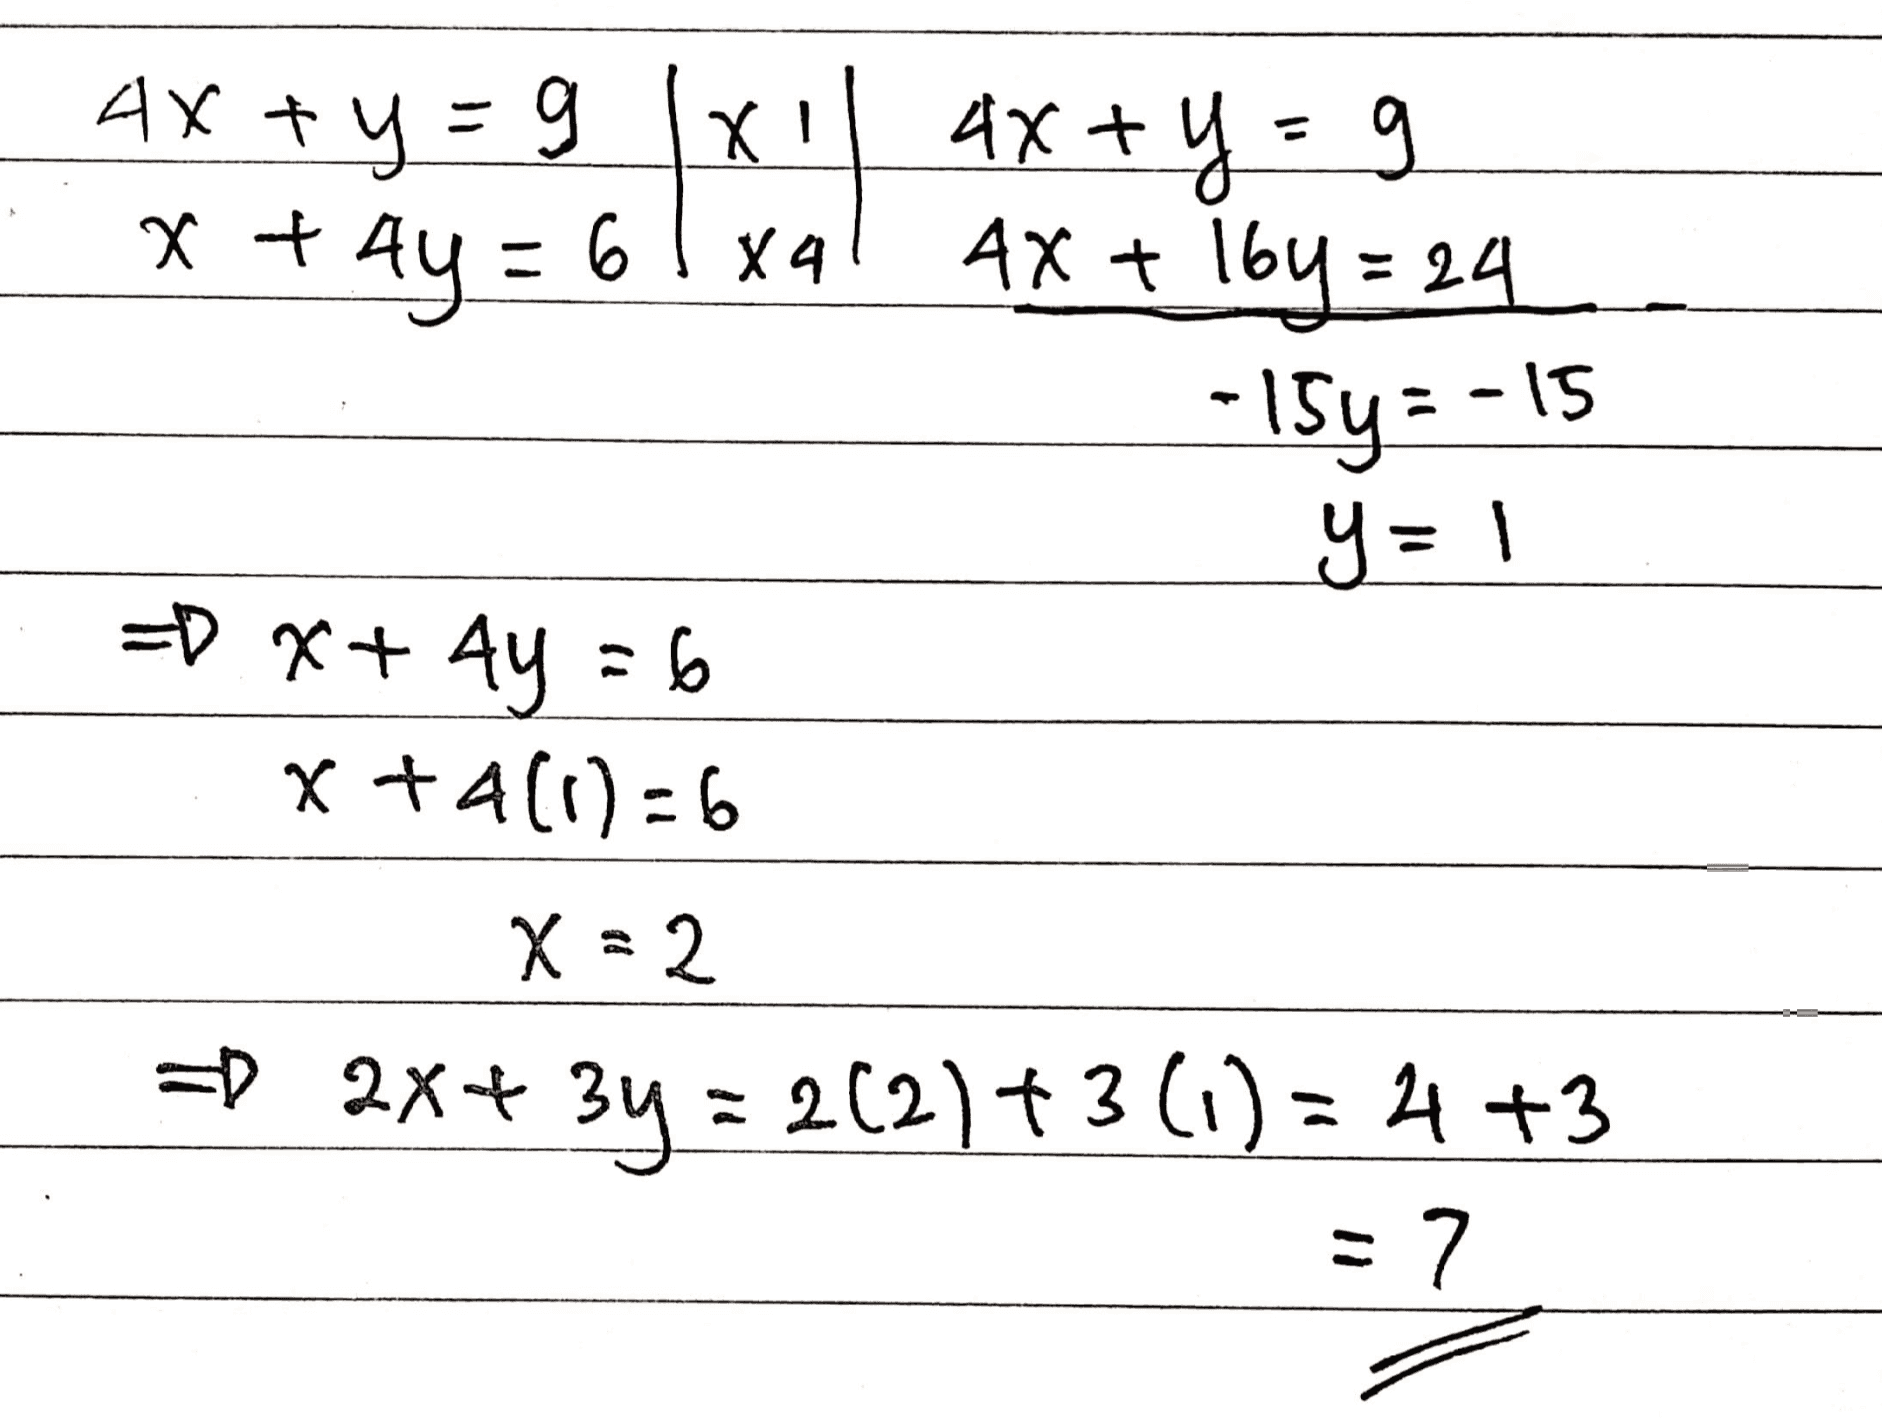 4x + y = 9 | x 1 | 4x + y = 9
x + 4y = 6 | x 4 | 4x + 16y = 24 -
-15y = -15
y = 1
⇒ x + 4y = 6
x + 4(1) = 6
x = 2
⇒ 2x + 3y = 2(2) + 3(1) = 4 + 3
= 7